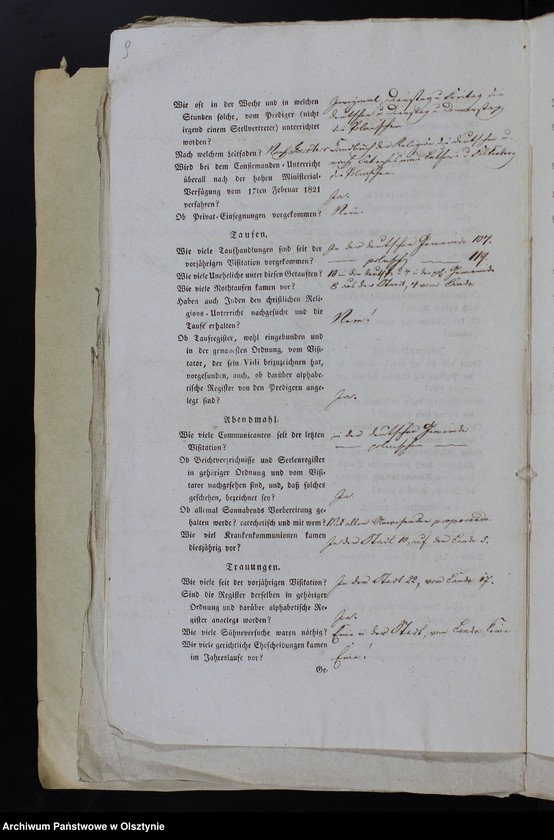 9
Wie oft in der Woche und in welchen
Stunden solche, vom Prediger (nicht
irgend einem Stellvertreter) unterrichtet
worden?
Nach welchem Leitfaden?
Wird bei dem Confirmanden-Unterricht
überall nach der hohen Ministerial-
Verfügung vom 17ten Februar 1821
verfahren? Ja.
Ob Privat-Einsegnungen vorgekommen? Nein.
Taufen.
Wie viele Taufhandlungen sind seit der In der deutschen Gemeinde 107.
vorjährigen Visitation vorgekommen? — polnisch — 119.
Wie viele Uneheliche unter diesen Getauften?
Wie viele Nothtaufen kamen vor?
Haben auch Juden den christlichen Reli-
gions-Unterricht nachgesucht und die
Taufe erhalten? Nein!
Ob Taufregister, wohl eingebunden und
in der genauesten Ordnung, vom Visi-
tator, der sein Vidi beizuzeichnen hat,
vorgefunden, auch, ob darüber alphabe-
tische Register von den Predigern ange-
legt sind? Ja.
Abendmahl.
Wie viele Communicanten seit der letzten in der deutschen Gemeinde
Visitation? — polnischen —
Ob Beichtverzeichnisse und Seelenregister
in gehöriger Ordnung und vom Visi-
tator nachgesehen sind, und, daß solches
geschehen, bezeichnet sey? Ja.
Ob allemal Sonnabends Vorbereitung ge-
halten werde? catechetisch und mit wem?
Wie viel Krankenkommunionen kamen In der Stadt 10, auf dem Lande 5.
diesjährig vor?
Trauungen.
Wie viele seit der vorjährigen Visitation? In der Stadt 22, vom Lande 17.
Sind die Register derselben in gehöriger
Ordnung und darüber alphabetische Re-
gister angelegt worden? Ja.
Wie viele Sühneversuche waren nöthig? Eine in der Stadt, vom Lande keine
Wie viele gerichtliche Ehescheidungen kamen
im Jahreslaufe vor? Eine!
Ge-
Archiwum Państwowe w Olsztynie